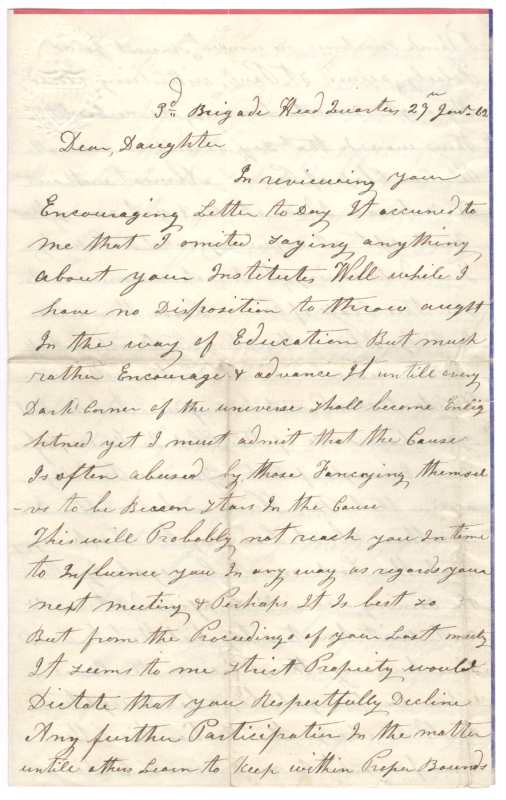 3d Brigade Head Quarters 27th Jan. 62
Dear, Daughter
In reviewing your
Encouraging Letter to Day It occured to
me that I omited saying anything
about your Institutes Well while I
have no Disposition to throw aught
In the way of Education But much
rather Encourage & advance It untill every
Dark Corner of the universe shall become Enlig
htned yet I must admit that the Cause
Is often abused by those Fancying themsel
-vs to be Beacon stars In the Cause
This will Probably not reach you In time
to Influence you In any way as regards your
next meeting & Perhaps It Is best so
But from the Proceedings of your Last meetg
It seems to me strict Propriety would
Dictate that you Respectfully Decline
Any further Participation In the matter
untile others Learn to keep within Proper Bounds